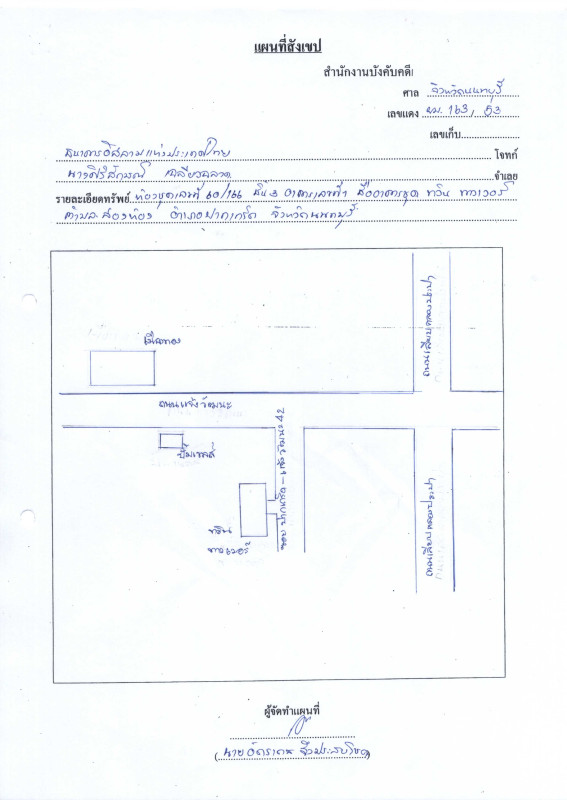 แผนที่สังเขป
สำนักงานบังคับคดี
ศาล จังหวัดนนทบุรี
เลขแดง ผบ. 163, 53
เลขเก็บ
ธนาคารอิสลามแห่งประเทศไทย โจทก์
นางศิริลักษณ์ จำเลย
รายละเอียดทรัพย์ ห้องชุดเลขที่ 60/166 ชั้น 3 อาคารเลขที่ 1 ชื่ออาคารชุด ทวิน ทาวเวอร์
ตำบล สองห้อง อำเภอปากเกร็ด จังหวัดนนทบุรี
ถนนเลียบคลองประปา
เมืองทอง
ถนนแจ้งวัฒนะ
ปั๊มเชลล์
ซอย ปากเกร็ด - แจ้งวัฒนะ 42
ทวิน
ทาวเวอร์
ถนนเลียบคลองประปา
ผู้จัดทำแผนที่
(นาย